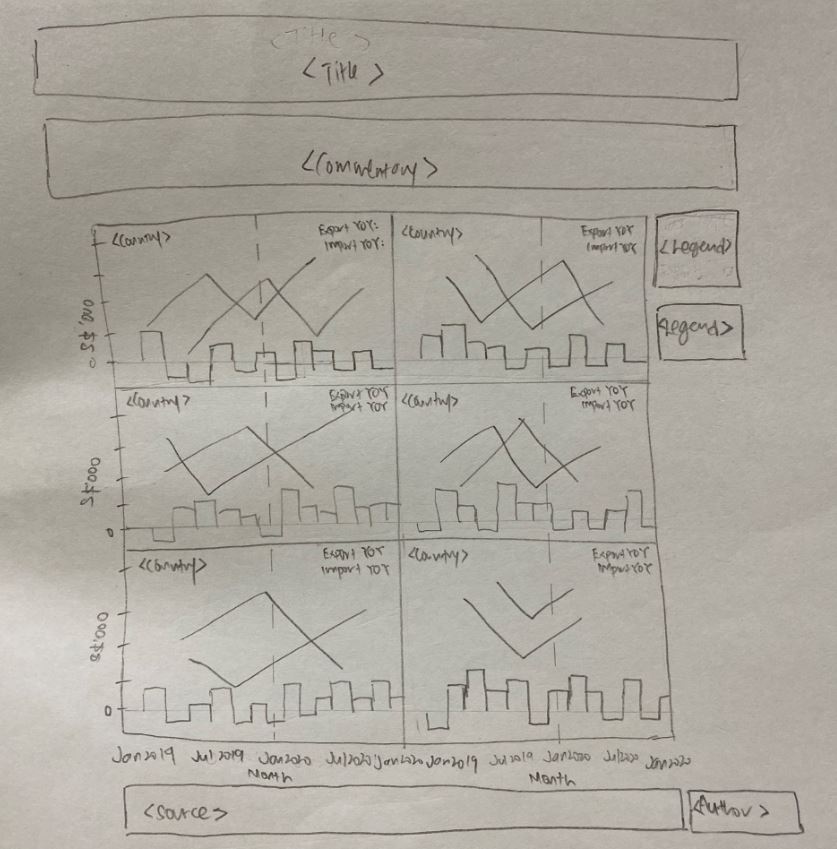 <Title>
<Title>
<Commentary>
<Country>
Export YOY:
Import YOY:
<Country>
Export YOY
Import YOY
<Legend>
<Legend>
S$'000
0
<Country>
Export YOY
Import YOY
<Country>
Export YOY
Import YOY
S$'000
0
<Country>
Export YOY
Import YOY
<Country>
Export YOY
Import YOY
S$'000
0
Jan 2019 Jul 2019 Jan 2020 Jul 2020 Jan 2020 Jan 2019 Jul 2019 Jan 2020 Jul 2020 Jan 2020
Month Month
<Source>
<Author>